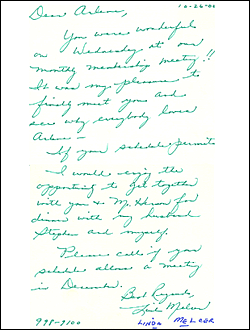 10-26-00
Dear Arlene,
You were wonderful
on Wednesday at our
monthly membership meeting!!
It was my pleasure to
finally meet you and
see why everybody loves
Arlene —
If your schedule permits
I would enjoy the
opportunity to get together
with you & Mr.
dinner with my husband
Stephen and myself.
Please call if your
schedule allows a meeting
in December.
Best Regards,
Linda Melcer
998-9100 LINDA MELCER